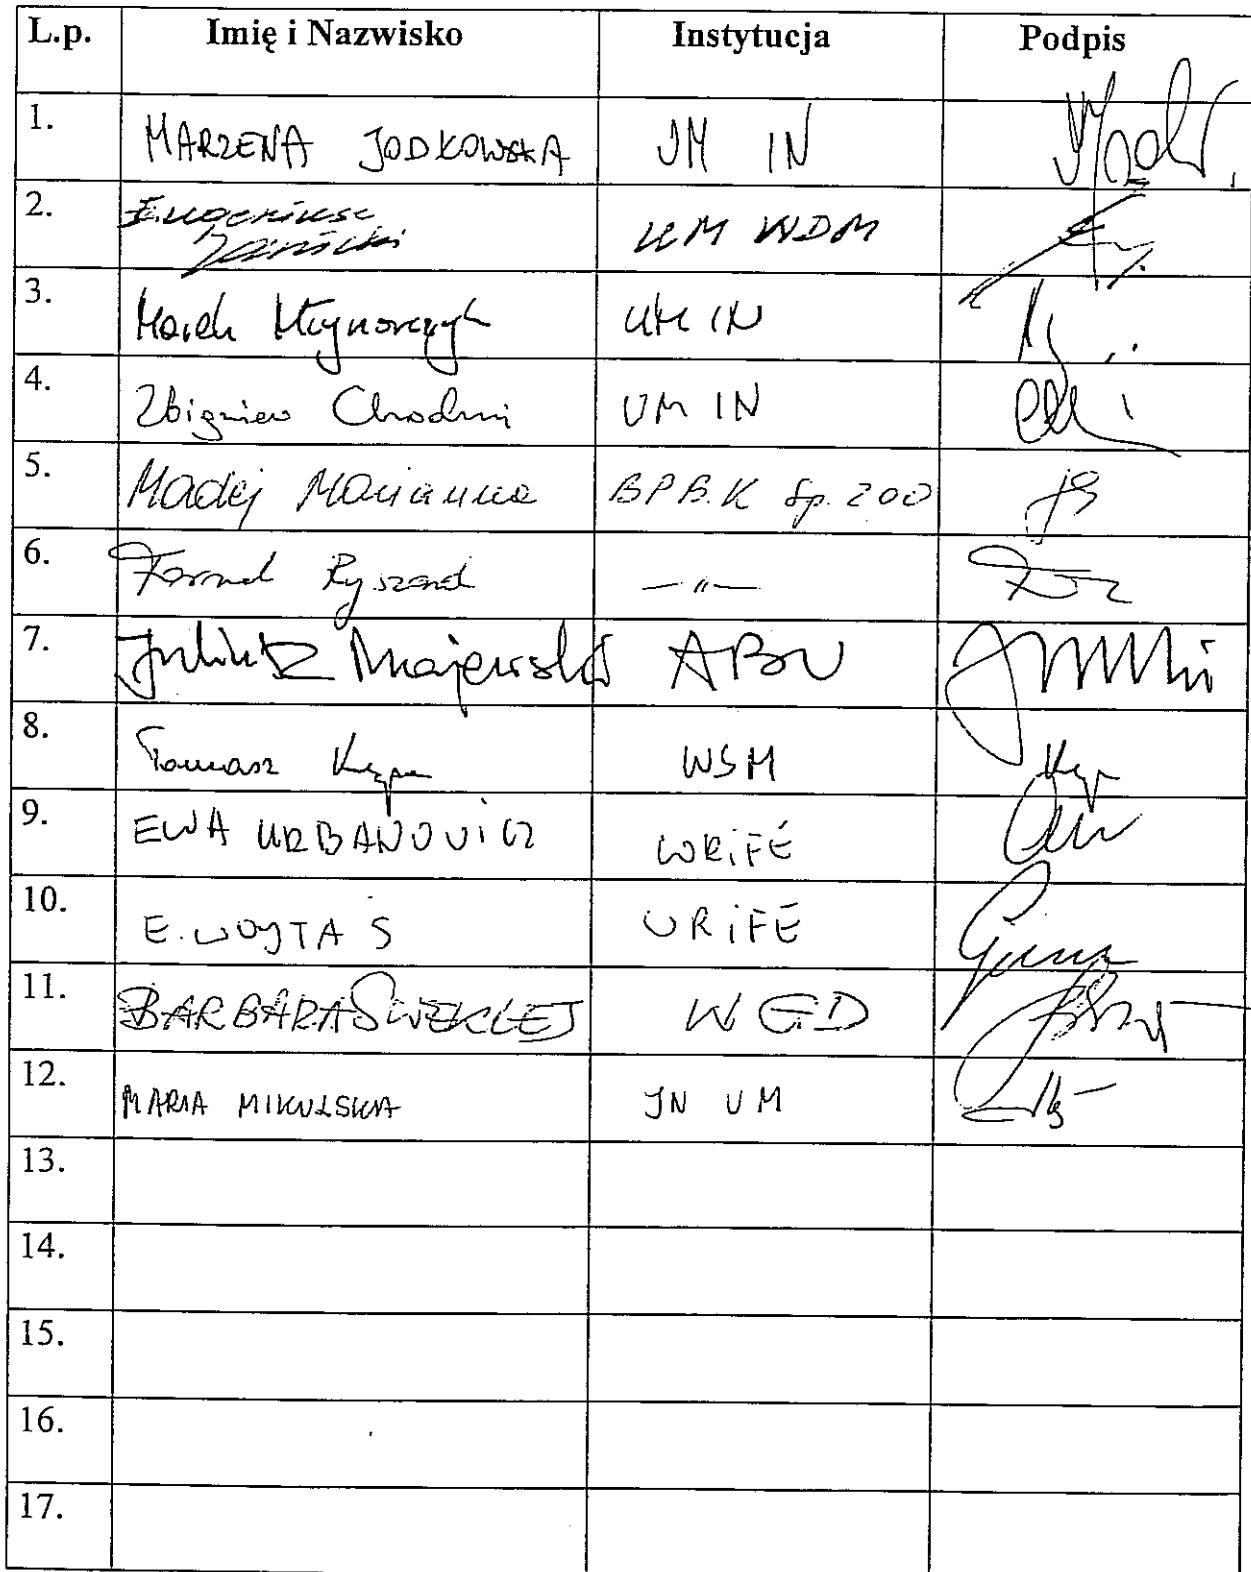 L.p. Imię i Nazwisko Instytucja Podpis
1. MARZENA JODKOWSKA UM IN
2. Eugeniusz
Janicki UM WDM
3. Marek Młynarczyk UM IN
4. Zbigniew Chodni UM IN
5. Madej Marianna BPBK Sp. 200
6. Ryszard —〃—
7. Juliusz Majewski ABU
8. Tomasz WSM
9. EWA URBANOWICZ WRiFE
10. E. WOJTAS WRiFE
11. BARBARA SWEKLEJ WGD
12. MARIA MIKULSKA IN UM
13.
14.
15.
16.
17.